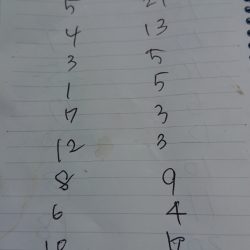 5 21
4 13
3 5
1 5
17 3
12 3
8 9
6 4